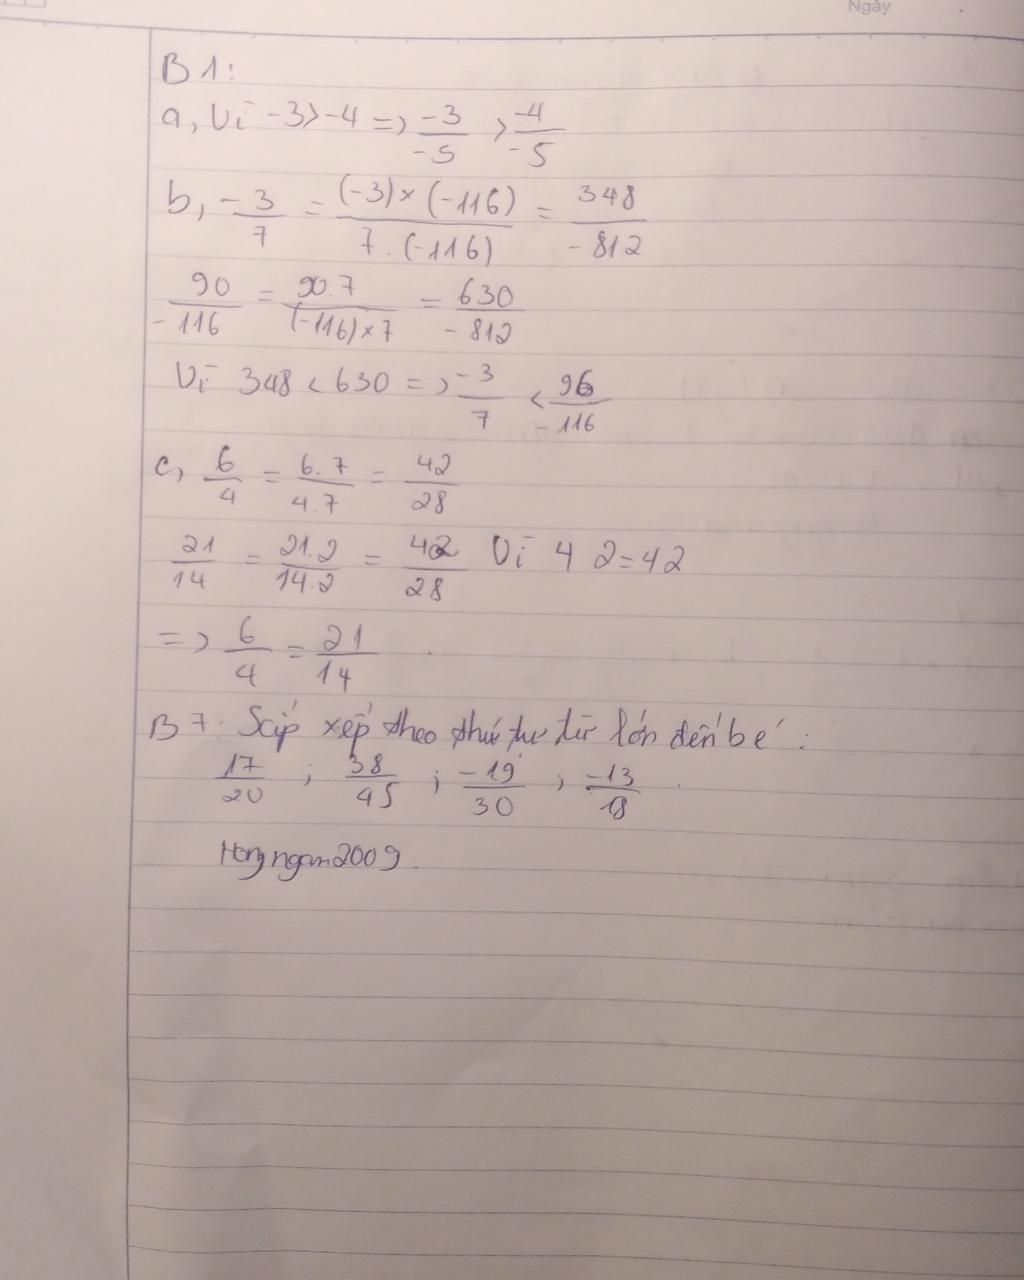 Ngày
B1:
a, Vì -3>-4 => -3/-5 > -4/-5
b, -3/7 = (-3)×(-116)/7.(-116) = 348/-812
90/-116 = 90.7/(-116)×7 = 630/-812
Vì 348 < 630 => -3/7 < 96/-116
c, 6/4 = 6.7/4.7 = 42/28
21/14 = 21.2/14.2 = 42/28 Vì 42=42
=> 6/4 = 21/14
B7: Sắp xếp theo thứ tự từ lớn đến bé:
17/20 ; 38/45 ; -19/30 ; -13/18
Hongngan2009.